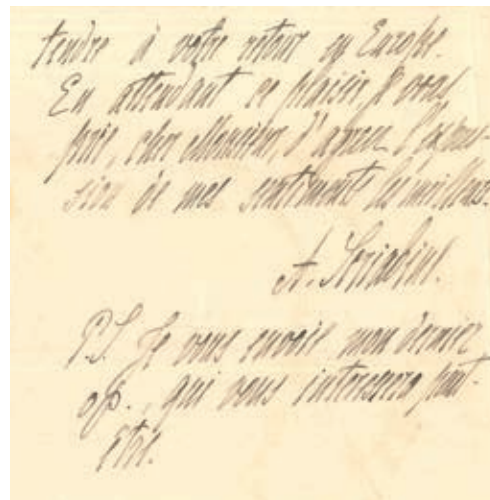 tendre à votre retour en Europe.
En attendant ce plaisir, je vous
prie, cher Monsieur, d'agréer l'expres-
sion de mes sentiments les meilleurs.
A. Scriabine.
P.S. Je vous envoie mon dernier
op., qui vous interessera peut-
être.